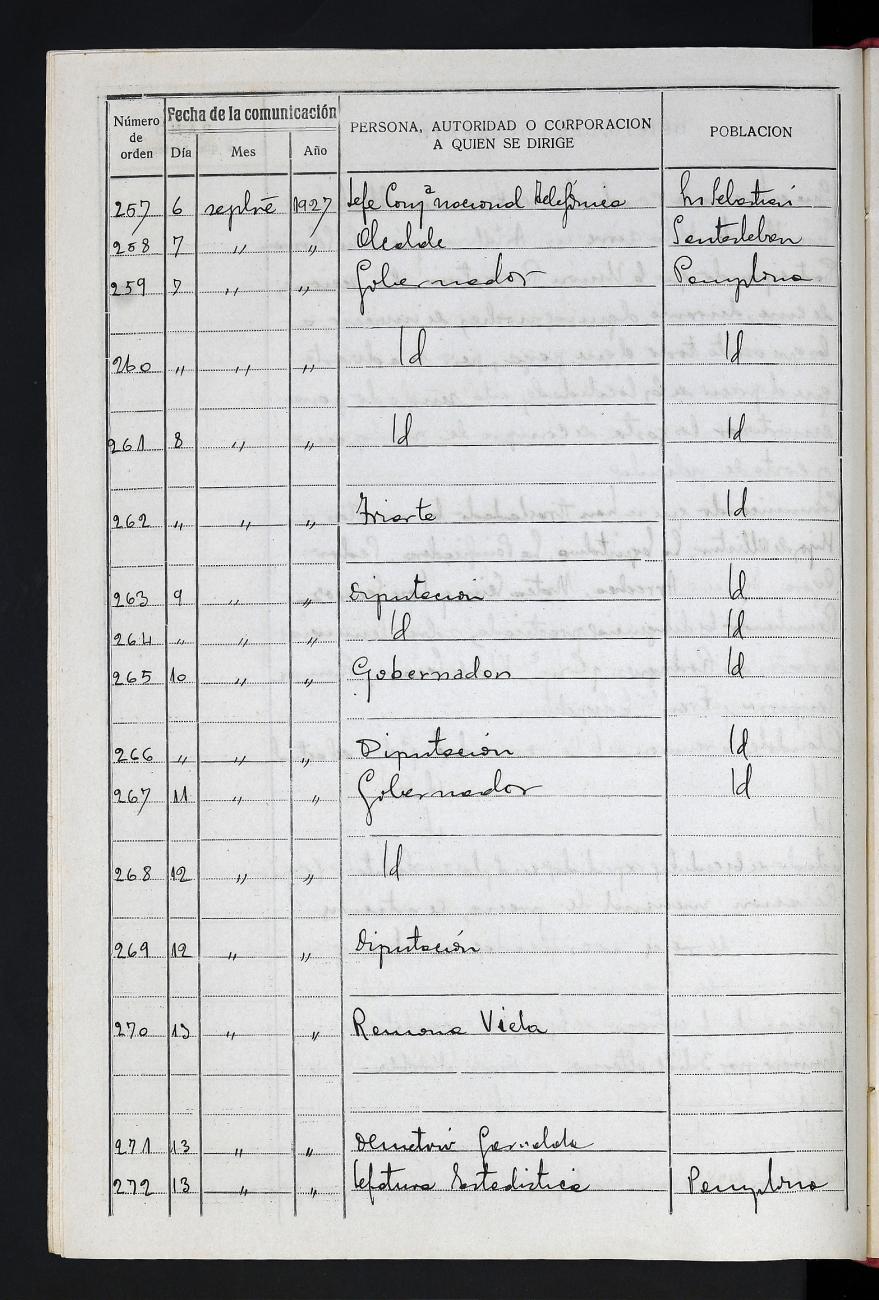 Número de orden Fecha de la comunicación PERSONA, AUTORIDAD O CORPORACION A QUIEN SE DIRIGE POBLACION
Día Mes Año
257 6 septbre 1927 Jefe Compª nacional Telefónica Sn Sebastian
258 7 " " Alcalde Santesteban
259 7 " " Gobernador Pamplona
260 " " " Id Id
261 8 " " Id Id
262 " " " Iriarte Id
263 9 " " Diputación Id
264 " " " Id Id
265 10 " " Gobernador Id
266 " " " Diputación Id
267 11 " " Gobernador Id
268 12 " " Id
269 12 " " Diputación
270 13 " " Ramona Viela
271 13 " " Demetrio
272 13 " " Jefatura Estadistica Pamplona